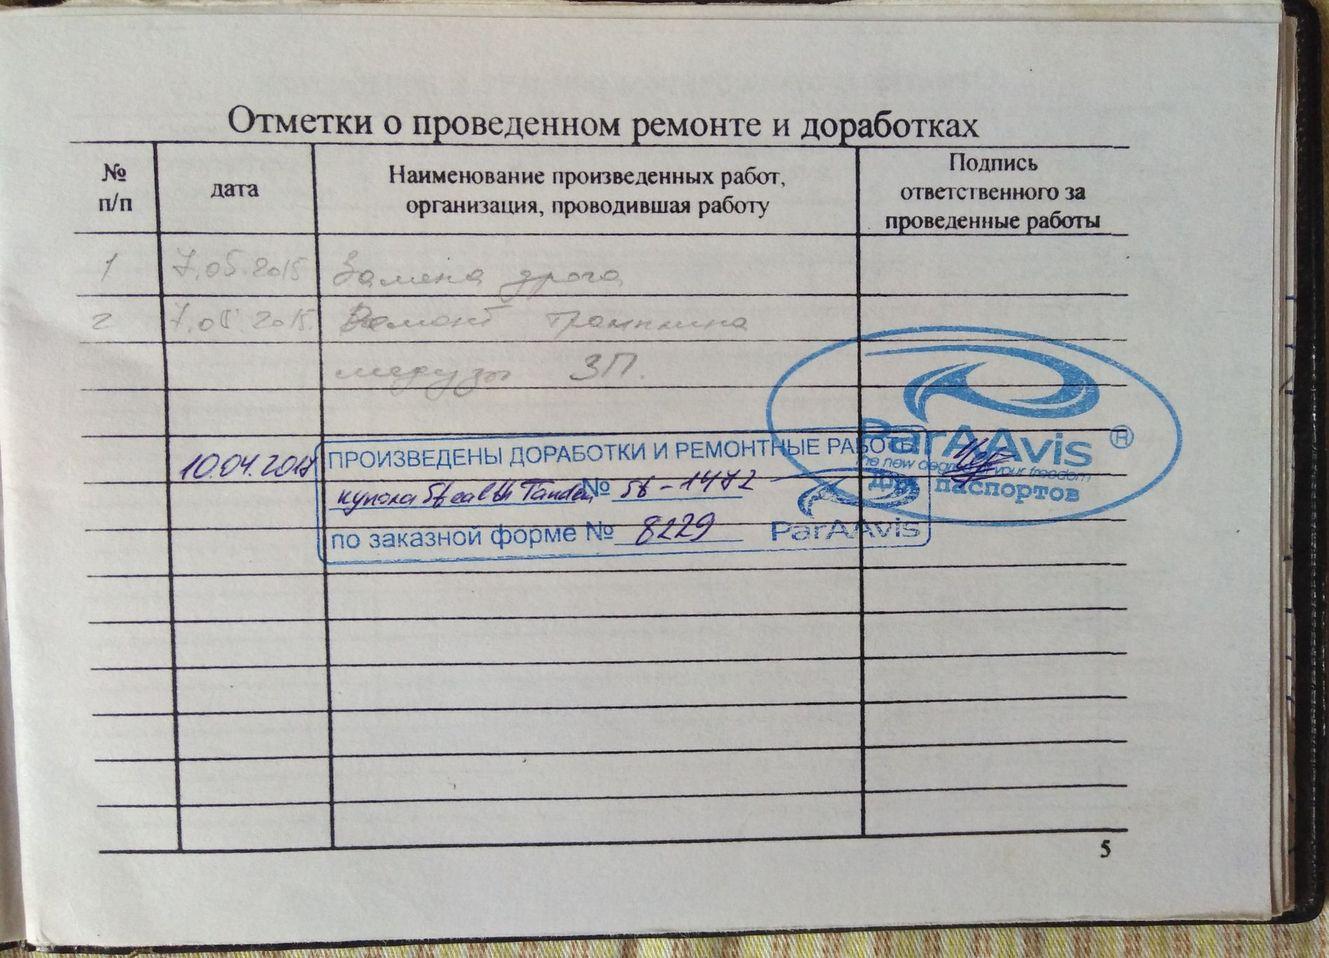 Отметки о проведенном ремонте и доработках
№ п/п
дата
Наименование произведенных работ,
организация, проводившая работу
Подпись
ответственного за
проведенные работы
1 7.05.2015 Замена дрога
2 7.05.2015 Ремонт трамплина
медузы ЗП.
ParAAvis ®
The new degree of your freedom
для паспортов
10.04.2017 ПРОИЗВЕДЕНЫ ДОРАБОТКИ И РЕМОНТНЫЕ РАБОТЫ
купола Stealth Tandem № St-1472
по заказной форме № 8229
ParAAvis
5